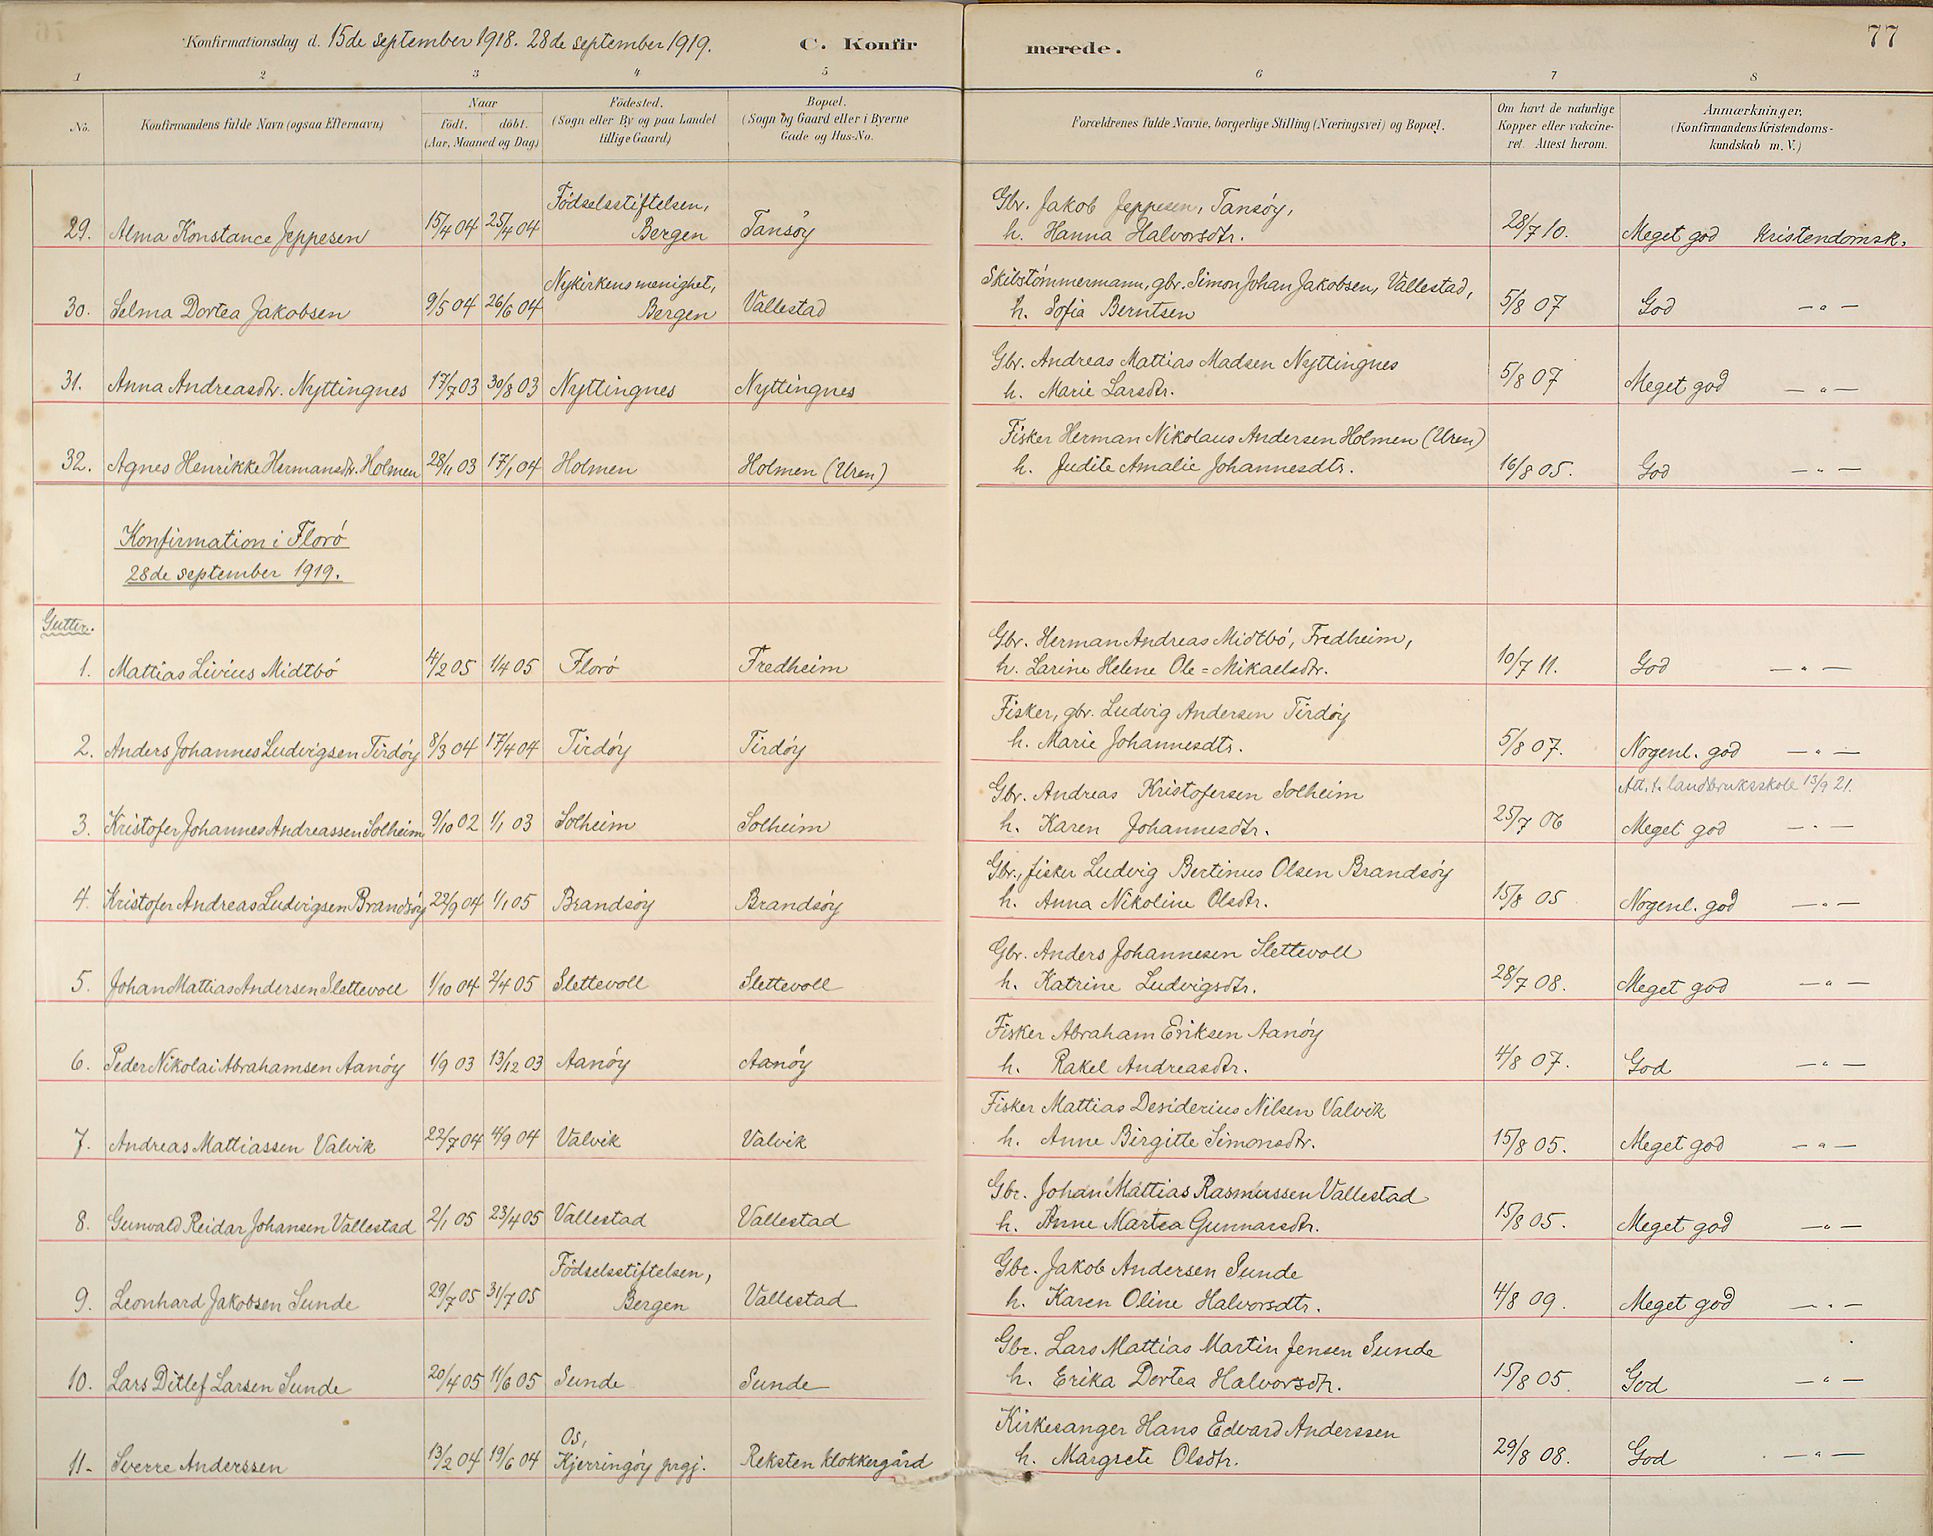 Konfirmationsdag d. 15de september 1918. 28de september 1919. C. Konfirmerede. 77
1 2 3 4 5 6 7 8
No. Konfirmandens fulde Navn (ogsaa Efternavn) Naar født. døbt. (Aar, Maaned og Dag) Fødested. (Sogn eller By og paa Landet tillige Gaard) Bopæl. (Sogn og Gaard eller i Byerne Gade og Hus-No. Forældrenes fulde Navne, borgerlige Stilling (Næringsvei) og Bopæl. Om havt de naturlige Kopper eller vakcineret. Attest herom. Anmærkninger. (Konfirmandens Kristendomskundskab m. V.)
Fødselsstiftelsen, Gbr. Jakob Jeppesen, Tansøy,
29. Alma Konstance Jeppesen 15/4 04 25/4 04 Bergen Tansøy h. Hanna Halvorsdtr. 28/7 10. Meget god Kristendomsk.
Nykirkens menighet, Skibstømmermann, gbr. Simon Johan Jakobsen, Vallestad,
30. Selma Dortea Jakobsen 9/5 04 26/6 04 Bergen Vallestad h. Sofia Berntsen 5/8 07 God — " —
Gbr. Andreas Mattias Madsen Nyttingnes
31. Anna Andreasdtr. Nyttingnes 17/7 03 30/8 03 Nyttingnes Nyttingnes h. Marie Larsdtr. 5/8 07 Meget god — " —
Fisker Herman Nikolaus Andersen Holmen (Uren)
32. Agnes Henrikke Hermansdtr. Holmen 28/11 03 17/1 04 Holmen Holmen (Uren) h. Judite Amalie Johannesdtr. 16/8 05. God — " —
Konfirmation i Florø
28de september 1919.
Gutter.
Gbr. Herman Andreas Midtbø, Fredheim,
1. Mattias Livius Midtbø 4/2 05 1/4 05 Florø Fredheim h. Larine Helene Ole=Mikaelsdtr. 10/7 11. God — " —
Fisker, gbr. Ludvig Andersen Tirdøy
2. Anders Johannes Ludvigsen Tirdøy 8/3 04 17/4 04 Tirdøy Tirdøy h. Marie Johannesdtr. 5/8 07. Nogenl. god — " —
Gbr. Andreas Kristofersen Solheim Att. t. landbruksskole 13/9 21.
3. Kristofer Johannes Andreassen Solheim 9/10 02 1/1 03 Solheim Solheim h. Karen Johannesdtr. 25/7 06 Meget god — " —
Gbr., fisker Ludvig Bertinus Olsen Brandsøy
4. Kristofer Andreas Ludvigsen Brandsøy 22/9 04 1/1 05 Brandsøy Brandsøy h. Anna Nikoline Olsdtr. 15/8 05 Nogenl. god — " —
Gbr. Anders Johannesen Slettevoll
5. Johan Mattias Andersen Slettevoll 1/10 04 2/4 05 Slettevoll Slettevoll h. Katrine Ludvigsdtr. 28/7 08. Meget god — " —
Fisker Abraham Eriksen Aanøy
6. Peder Nikolai Abrahamsen Aanøy 1/9 03 13/12 03 Aanøy Aanøy h. Rakel Andreasdtr. 4/8 07. God — " —
Fisker Mattias Desiderius Nilsen Valvik
7. Andreas Mattiassen Valvik 22/7 04 4/9 04 Valvik Valvik h. Anne Birgitte Simonsdtr. 15/8 05. Meget god — " —
Gbr. Johan Mattias Rasmussen Vallestad
8. Gunvald Reidar Johansen Vallestad 2/1 05 23/4 05 Vallestad Vallestad h. Anne Martea Gunnarsdtr. 15/8 05. Meget god — " —
Fødselsstiftelsen, Gbr. Jakob Andersen Sunde
9. Leonhard Jakobsen Sunde 29/7 05 31/7 05 Bergen Vallestad h. Karen Oline Halvorsdtr. 4/8 09. Meget god — " —
Gbr. Lars Mattias Martin Jensen Sunde
10. Lars Ditlef Larsen Sunde 20/4 05 11/6 05 Sunde Sunde h. Erika Dortea Halvorsdtr. 15/8 05. God — " —
Os, Kirkesanger Hans Edvard Anderssen
11. Sverre Anderssen 13/2 04 19/6 04 Kjerringøy prgj. Reksten klokkergård h. Margrete Olsdtr. 29/8 08. God — " —